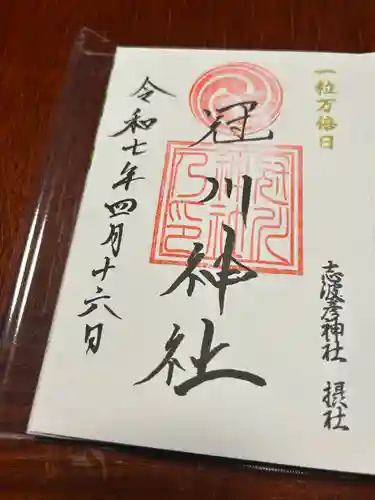 一粒万倍日
志波彦神社 摂社
冠川神社
令和七年四月十六日